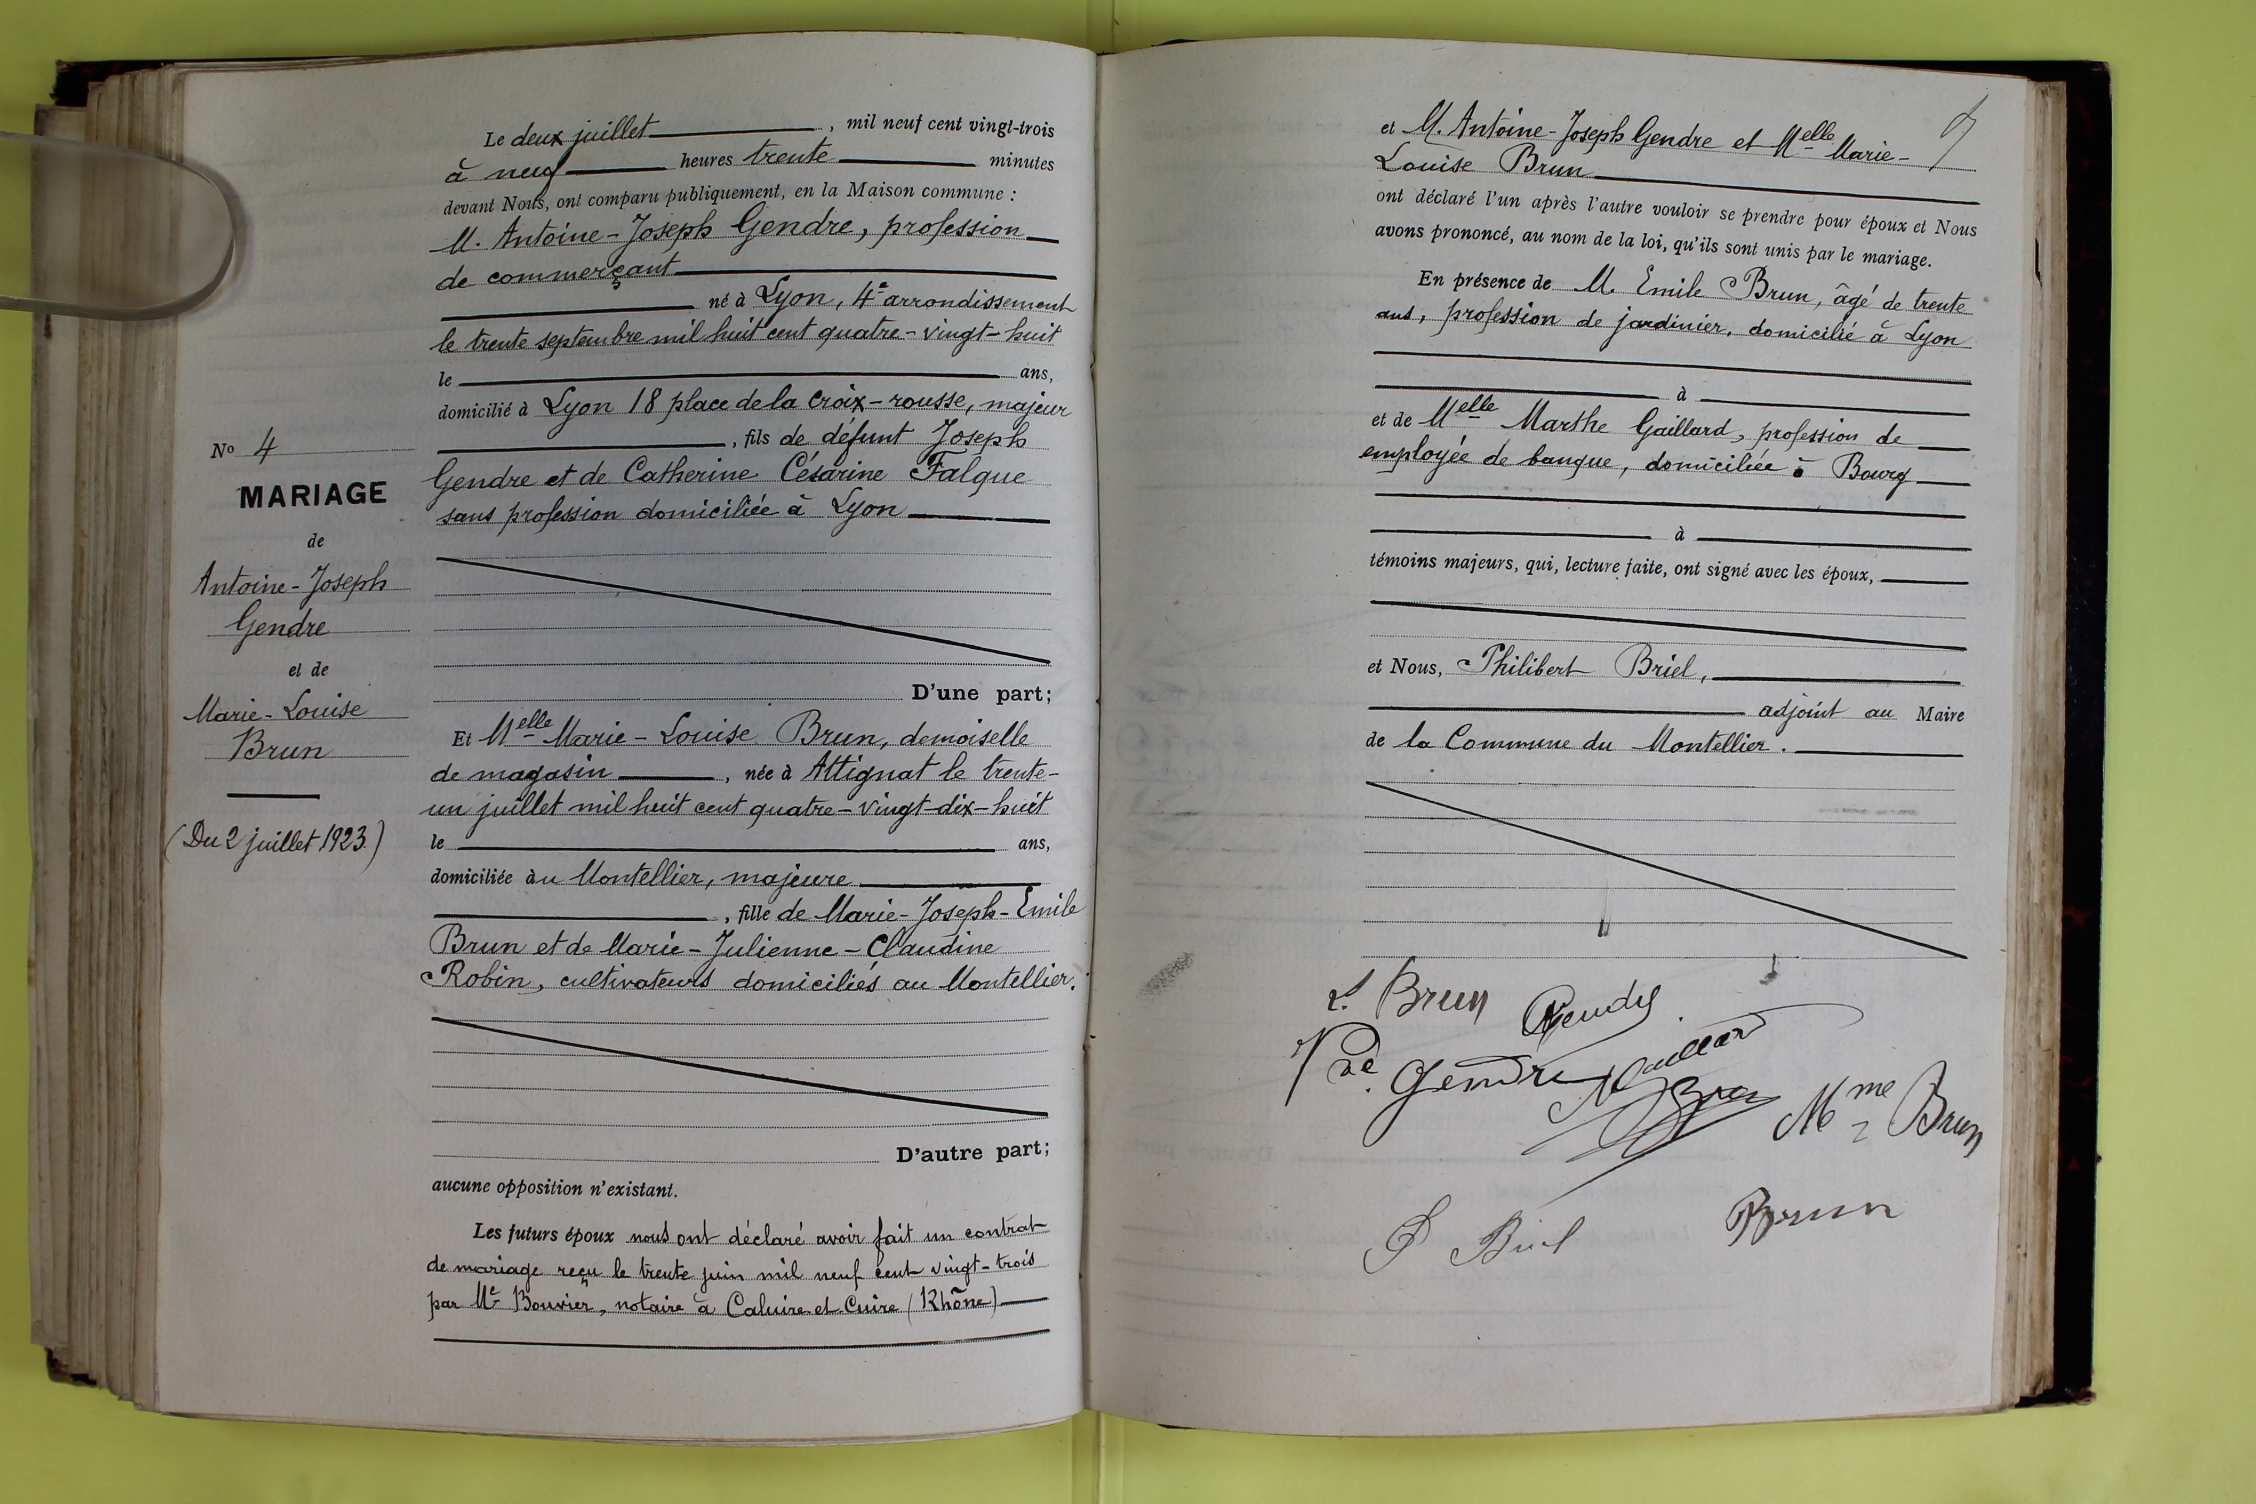 Le deux juillet, mil neuf cent vingt-trois
à neuf heures trente minutes
devant Nous, ont comparu publiquement, en la Maison commune :
M. Antoine-Joseph Gendre, profession
de commerçant
né à Lyon, 4e arrondissement
le trente septembre mil huit cent quatre-vingt-huit
le ans,
domicilié à Lyon 18 place de la Croix-rousse, majeur
, fils de défunt Joseph
Gendre et de Catherine Césarine Falque
sans profession domiciliée à Lyon
No 4
MARIAGE
de
Antoine-Joseph
Gendre
et de
Marie-Louise
Brun
(Du 2 juillet 1923.)
D'une part;
Et Melle Marie-Louise Brun, demoiselle
de magasin, née à Attignat le trente-
un juillet mil huit cent quatre-vingt-dix-huit
le ans,
domiciliée au Montellier, majeure
, fille de Marie-Joseph-Emile
Brun et de Marie-Julienne-Claudine
Robin, cultivateurs domiciliés au Montellier.
D'autre part;
aucune opposition n'existant.
Les futurs époux nous ont déclaré avoir fait un contrat
de mariage reçu le trente juin mil neuf cent vingt-trois
par Me Bouvier, notaire à Caluire et Cuire (Rhône)
et M. Antoine-Joseph Gendre et Melle Marie-
Louise Brun
ont déclaré l'un après l'autre vouloir se prendre pour époux et Nous
avons prononcé, au nom de la loi, qu'ils sont unis par le mariage.
En présence de M. Emile Brun, âgé de trente
ans, profession de jardinier, domicilié à Lyon
à
et de Melle Marthe Gaillard, profession de
employée de banque, domiciliée à Bourg
à
témoins majeurs, qui, lecture faite, ont signé avec les époux,
et Nous, Philibert Briel,
adjoint au Maire
de la Commune du Montellier.
L. Brun Gendre
Vve Gendre
Brun
Mme Brun
P Briel
Brun